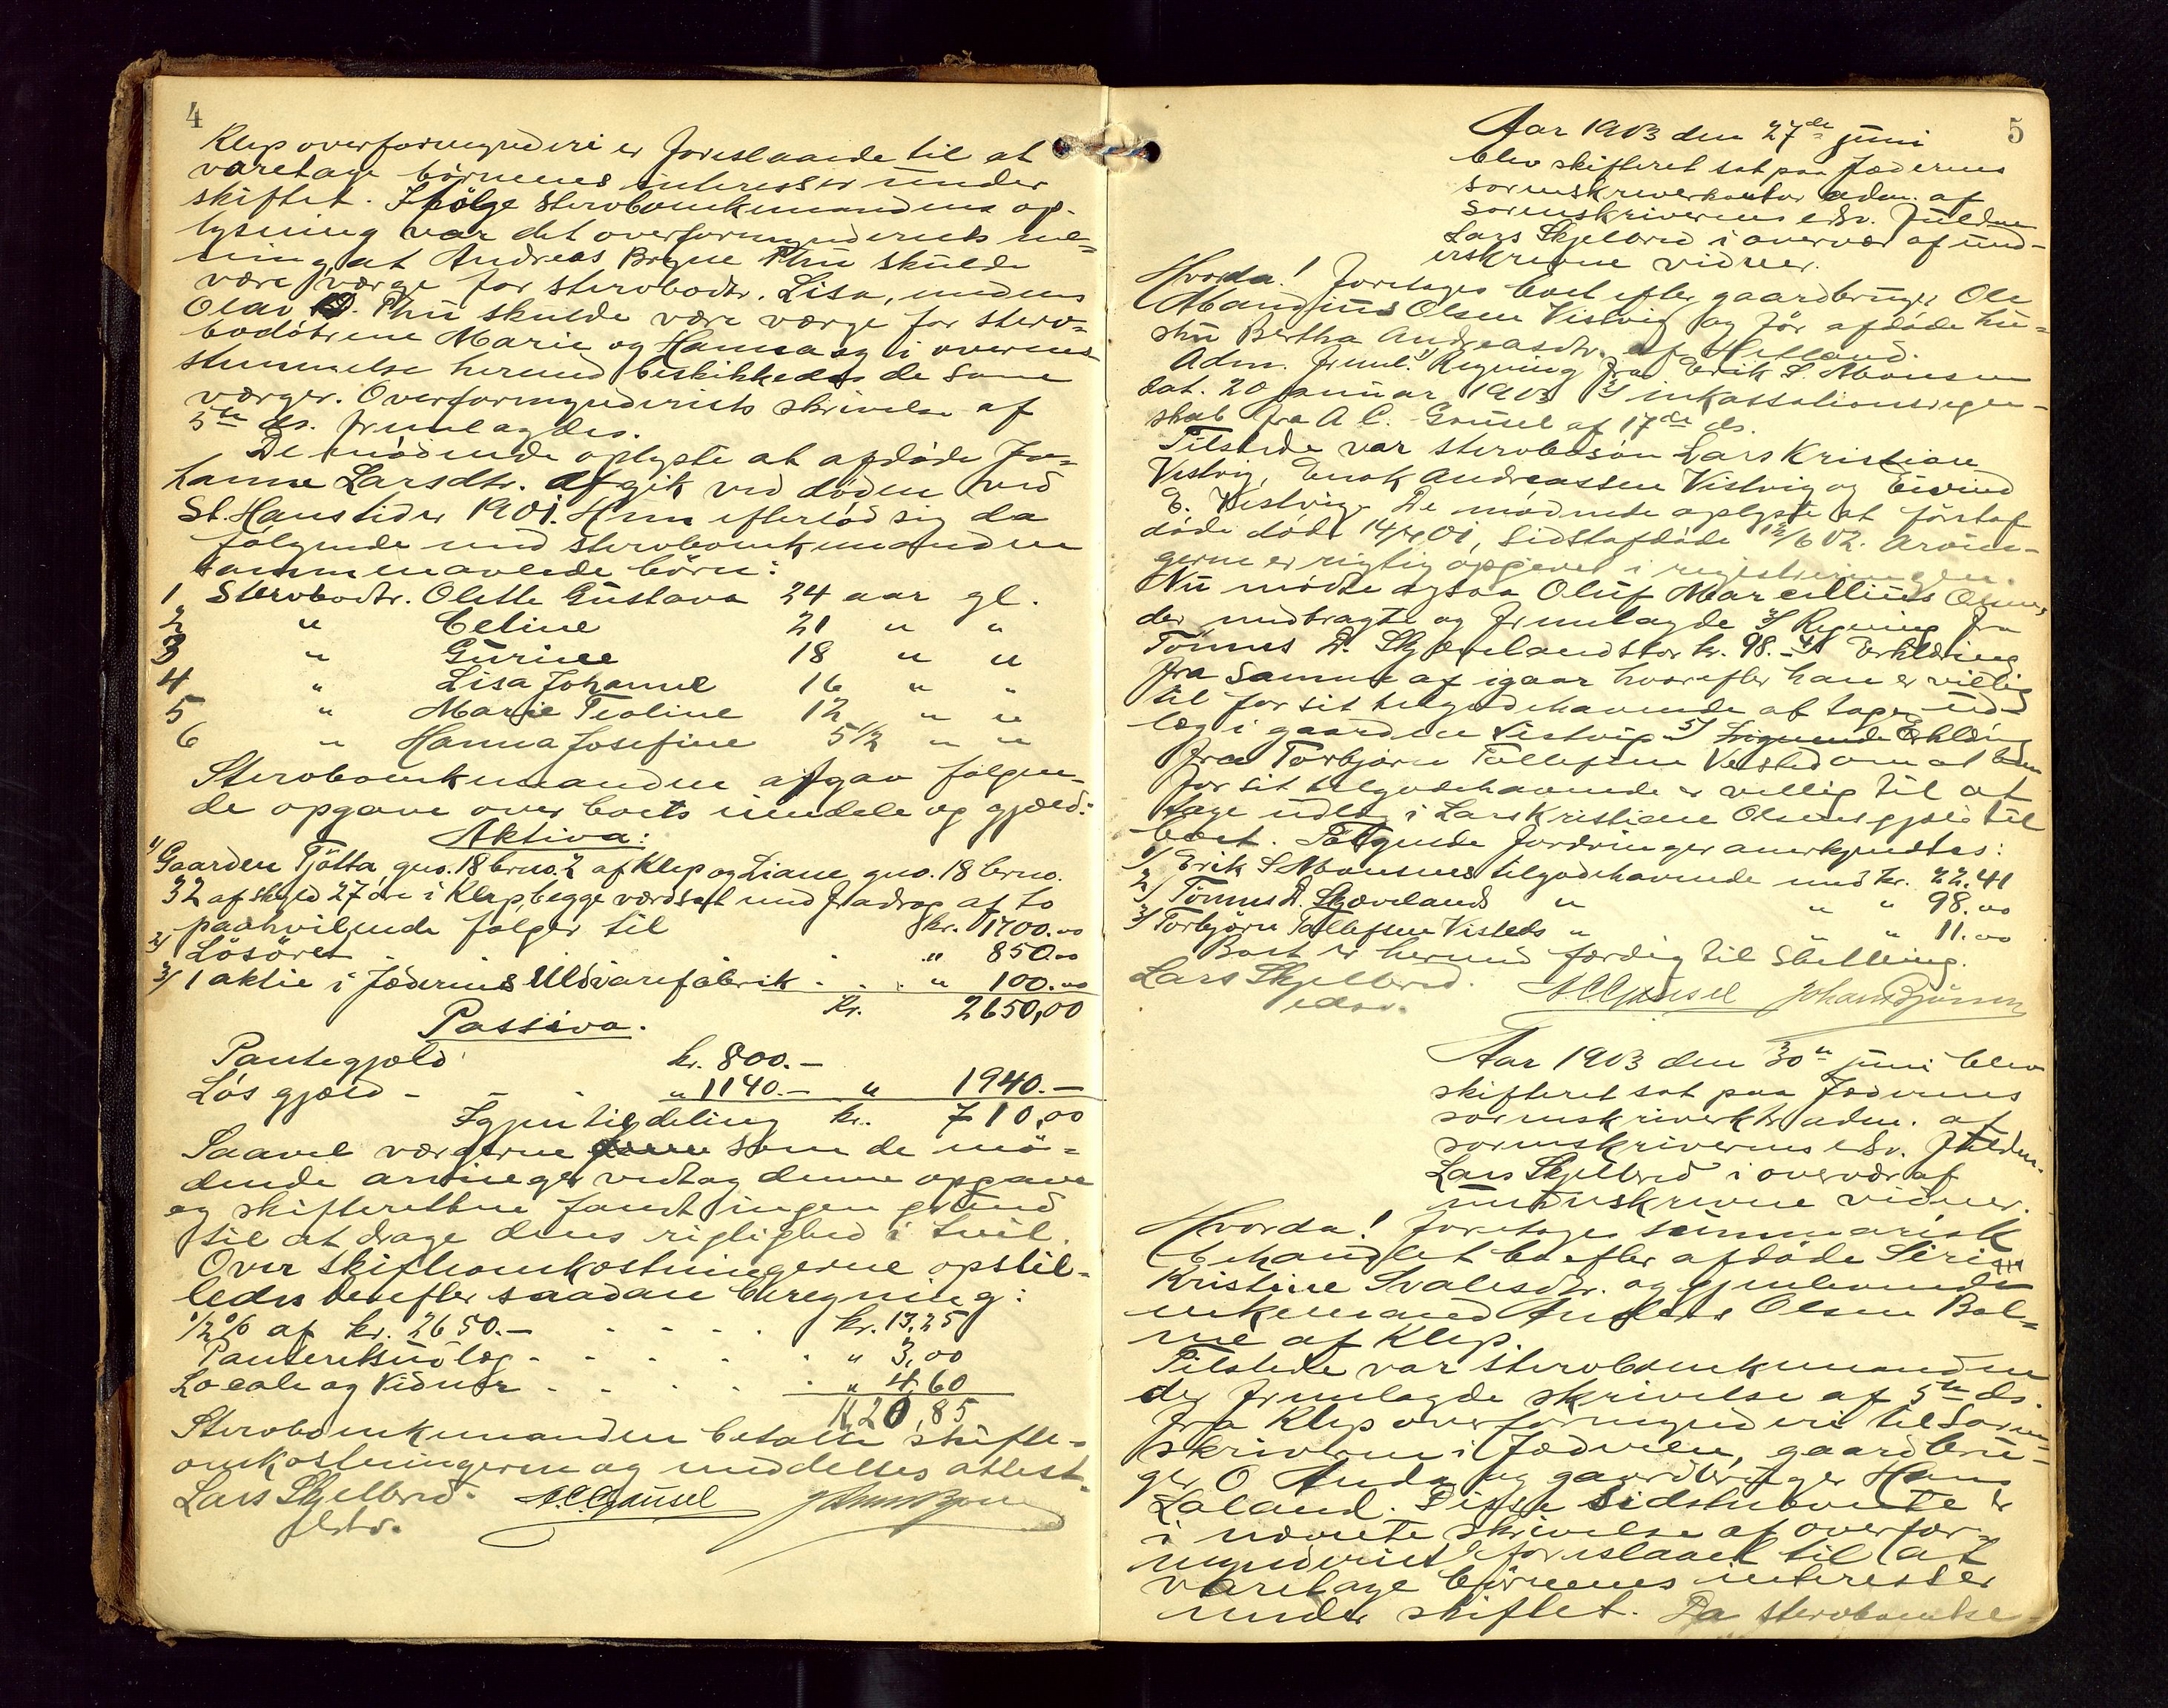 4
Klep overformynderi er foreslaaede til at
varetage börnenes interesser under
skiftet. Ifölge stervboenkemandens op-
lysning var det overformynderiets me-
ning at Andreas Bryne Thu skulde
være værge for stervbodtr. Lisa, medens
Olav D. Thu skulde være værge for sterv-
bodötrene Marie og Hanna og i overens-
stemmelse hermed beskikkedes de som
værger. Overformynderiets skrivelse af
5te ds. fremlagdes.
De mödende oplyste at afdöde Jo-
hanne Larsdtr. afgik ved döden ved
St. Hanstider 1901. Hun efterlod sig da
fölgende med stervboenkemanden
sammenavlede börn:
1 Stervbodtr. Olette Gustava 24 aar gl.
2 " Celine 21 " "
3 " Gurine 18 " "
4 " Lisa Johanne 16 " "
5 " Marie Teoline 12 " "
6 " Hanna Josefine 5 1/2 " "
Stervboenkemanden afgav fölgen-
de opgave over boets eiendele og gjæld:
Aktiva:
1/ Gaarden Tjötta, gno. 18 brno. 2 af Klep og Liane gno. 18 brno.
32 af skyld 27 öre i Klep, begge værdsat med fradrag af to
paahvilende folger til kr. 1700.00
2/ Lösöret - . " 850.00
3/ 1 aktie i Jæderens Uldvarefabrik . . . " 100.00
Kr. 2650,00
Passiva.
Pantegjæld kr. 800.-
Lös gjæld - - - " 1140.- " 1940.-
Igjen til deling kr. 710,00
Saavel værgerne som de mö-
dende arvinger vedtog denne opgave
og skifteretten fandt ingen grund
til at drage dens rigtighed i tvil.
Over skifteomkostningerne opstil-
ledes derefter saadan beregning:
1/2 % af kr. 2650.- - - - . kr. 13.25
Panteretsudlæg - - - - . " 3,00
Locale og Vidner . - . . . " 4,60
K. 20,85
Stervboenkemanden betalte skifte-
omkostningerne og meddeltes attest.
Lars Skjelbred. A C Gausel Johan Bjö
edsv.
5
Aar 1903 den 27de juni
blev skifteret sat paa Jæderens
sorenskriverkontor adm. af
sorenskriverens edsv. fuldm
Lars Skjelbred i overvær af und-
erskrevne vidner.
Hvorda! foretoges boet efter gaardbruger Ole
Mandius Olsen Vistvig og för afdöde hu-
stru Bertha Andreasdtr. af Hetland.
Adm. freml. 1/ Regning fra Erik S. Monsen
dat. 20 januar 1903 2/ inkassationsregn-
skab fra A C. Gausel af 17de ds.
Tilstede var stervbosön Lars Kristian
Vistvig, Enok Andreassen Vistvig og Eivind
E. Vistvig. De mödende oplyste at förstaf
döde död 14/4 01, sidstafdöde 12/6 02. Arvin-
gerne er rigtig opgivet i registreringen.
Nu mödte ogsaa Oluf Marcellius Olsen,
der medbragte og fremlagde 3/ Regning fra
Tönnes D. Skjævelandstor kr. 98.- 4/ Erklæring
fra samme af igaar hvorefter han er villig
til for sit tilgodehavende at tage ud-
læg i gaarden Vistvig 5/ Lignende Erklæring
fra Torbjörn Tollefsen Visted om at han
for sit tilgodehavende er villig til at
tage udlæg i Lars Kristian Olsens gjæld til
boet. Fölgende fordringer anerkjendtes:
1/ Erik S Monsens tilgodehavende med kr. 22.41
2/ Tönnes D. Skjævelands " " " 98.00
3/ Torbjörn Tollefsen Visteds " " " 11.00
Boet er hermed færdig til slutning.
Lars Skjelbred. A C Gausel Johan Björnsen
edsv.
Aar 1903 den 30te juni blev
skifteret sat paa Jæderens
sorenskriverktr. adm. af
sorenskriverens edsv. fuldm.
Lars Skjelbred i overvær af
underskrevne vidner.
Hvorda! foretoges summarisk
behandlet bo efter afdöde Siri
Kristine Svalesdtr. og gjenlevende
enkemand Anders Olsen Bal-
me af Klep.
Tilstede var stervboenkemanden
der fremlagde skrivelse af 5te ds.
fra Klep overformynderi til Soren-
skriveren i Jæderen, gaardbru-
ger O Anda og gaardbruger Hans
Laland. Disse sidstnævnte er
i nævnte skrivelse af overfor-
mynderiet foreslaaet til at
varetage börnenes interesser
under skiftet. Da stervboenke-